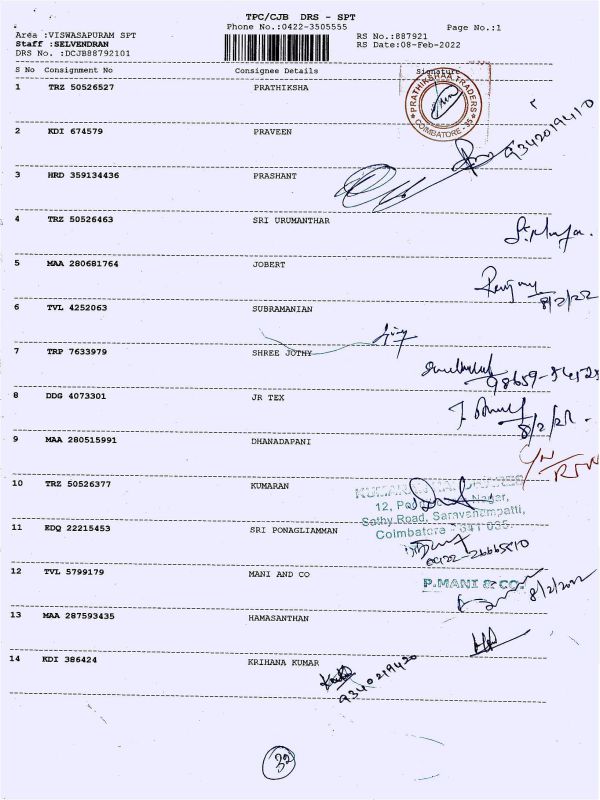 TPC/CJB DRS - SPT
Phone No.:0422-3505555
Page No.:1
Area :VISWASAPURAM SPT
RS No.:887921
Staff :SELVENDRAN
RS Date:08-Feb-2022
DRS No. :DCJB88792101
S No Consignment No Consignee Details Signature
1 TRZ 50526527 PRATHIKSHA
PRATHIKSHAA TRADERS
COIMBATORE - 35
2 KDI 674579 PRAVEEN
9342019410
3 HRD 359134436 PRASHANT
4 TRZ 50526463 SRI URUMANTHAR
5 MAA 280681764 JOBERT
8/2/22
6 TVL 4252063 SUBRAMANIAN
7 TRP 7633979 SHREE JOTHY
8 DDG 4073301 JR TEX
9 MAA 280515991 DHANADAPANI
10 TRZ 50526377 KUMARAN
12, Nagar,
Sathy Road, Saravanampatti,
Coimbatore - 641 035.
11 EDQ 22215453 SRI PONAGLIAMMAN
12 TVL 5799179 MANI AND CO
P.MANI & CO.
8/2/2022
13 MAA 287593435 HAMASANTHAN
14 KDI 386424 KRIHANA KUMAR
9340219420
32